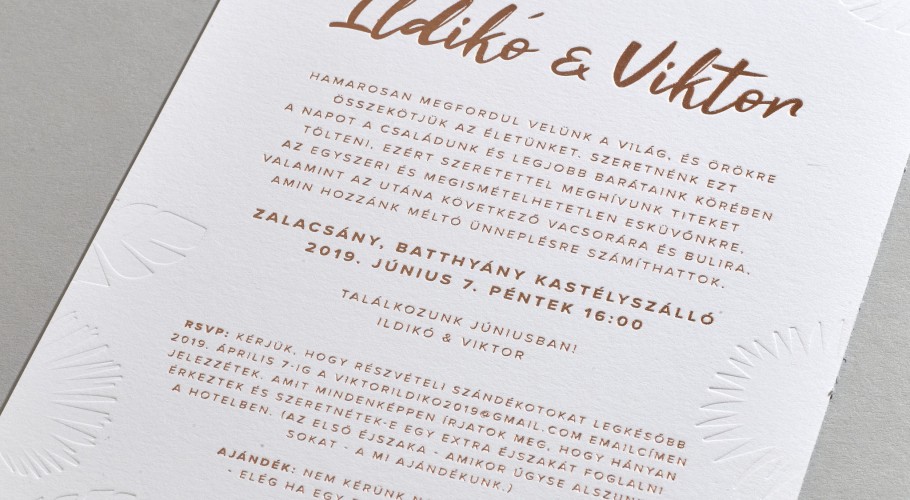 Ildikó & Viktor
HAMAROSAN MEGFORDUL VELÜNK A VILÁG, ÉS ÖRÖKRE
ÖSSZEKÖTJÜK AZ ÉLETÜNKET. SZERETNÉNK EZT
A NAPOT A CSALÁDUNK ÉS LEGJOBB BARÁTAINK KÖRÉBEN
TÖLTENI, EZÉRT SZERETETTEL MEGHÍVUNK TITEKET
AZ EGYSZERI ÉS MEGISMÉTELHETETLEN ESKÜVŐNKRE,
VALAMINT AZ UTÁNA KÖVETKEZŐ VACSORÁRA ÉS BULIRA,
AMIN HOZZÁNK MÉLTÓ ÜNNEPLÉSRE SZÁMÍTHATTOK.
ZALACSÁNY, BATTHYÁNY KASTÉLYSZÁLLÓ
2019. JÚNIUS 7. PÉNTEK 16:00
TALÁLKOZUNK JÚNIUSBAN!
ILDIKÓ & VIKTOR
RSVP: KÉRJÜK, HOGY RÉSZVÉTELI SZÁNDÉKOTOKAT LEGKÉSŐBB
2019. ÁPRILIS 7-IG A VIKTORILDIKO2019@GMAIL.COM EMAILCÍMEN
JELEZZÉTEK, AMIT MINDENKÉPPEN ÍRJATOK MEG, HOGY HÁNYAN
ÉRKEZTEK ÉS SZERETNÉTEK-E EGY EXTRA ÉJSZAKÁT FOGLALNI
A HOTELBEN. (AZ ELSŐ ÉJSZAKA - AMIKOR ÚGYSE ALSZUNK
SOKAT - A MI AJÁNDÉKUNK.)
AJÁNDÉK: NEM KÉRÜNK
- ELÉG HA EGY